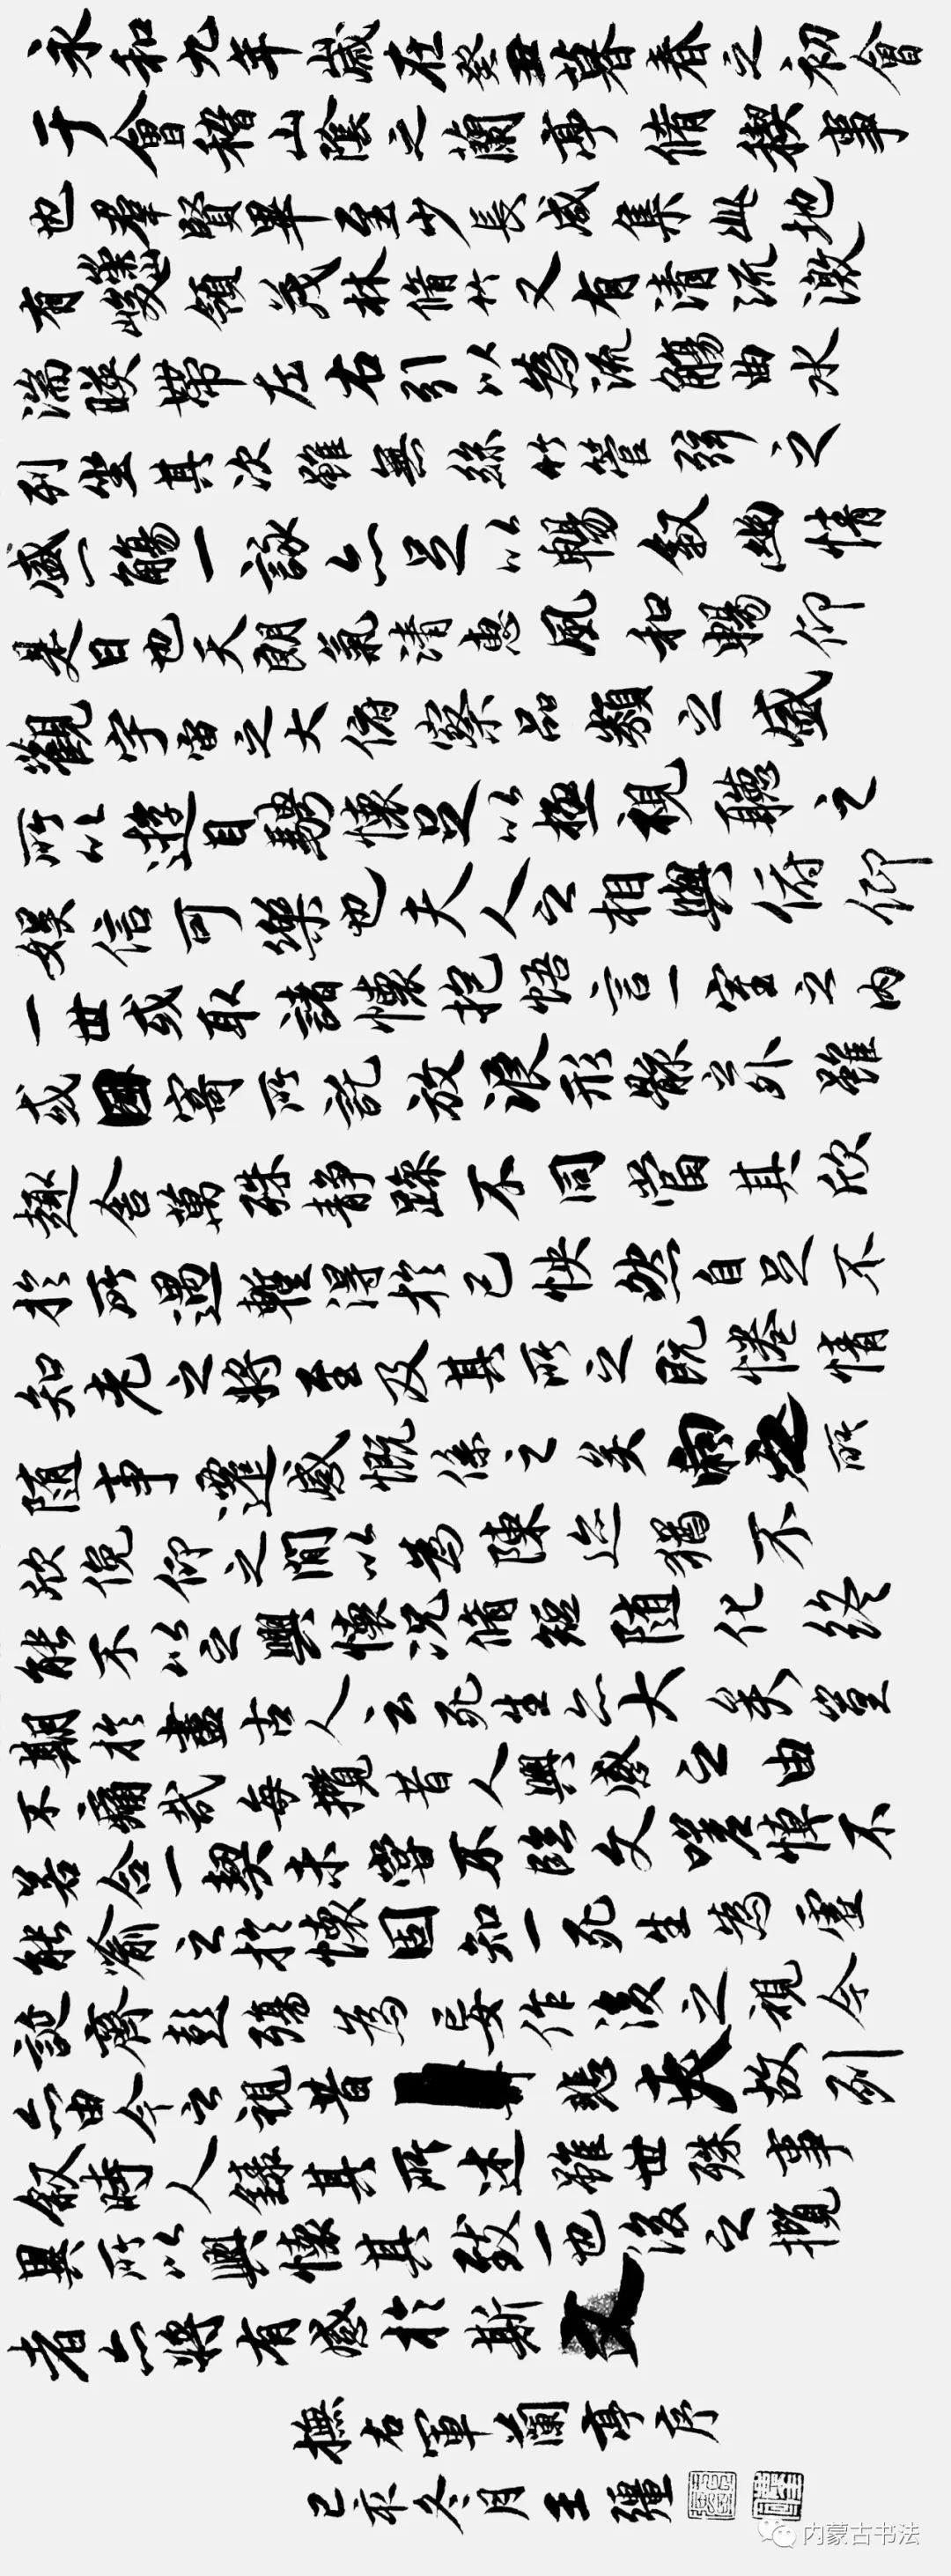 永和九年歲在癸丑暮春之初會
于會稽山陰之蘭亭脩稧事
也羣賢畢至少長咸集此地
有崇山峻領茂林脩竹又有清流激
湍暎帶左右引以為流觴曲水
列坐其次雖無絲竹管弦之
盛一觴一詠亦足以暢敘幽情
是日也天朗氣清惠風和暢仰
觀宇宙之大俯察品類之盛
所以遊目騁懷足以極視聽之
娛信可樂也夫人之相與俯仰
一世或取諸懷抱悟言一室之內
或因寄所託放浪形骸之外雖
趣舍萬殊靜躁不同當其欣
於所遇暫得於己怏然自足不
知老之將至及其所之既惓情
隨事遷感慨係之矣向之所
欣俛仰之間以為陳迹猶不
能不以之興懷況脩短隨化終
期於盡古人云死生亦大矣豈
不痛哉每攬昔人興感之由
若合一契未嘗不臨文嗟悼不
能喻之於懷固知一死生為虛
誕齊彭殤為妄作後之視今
亦由今之視昔悲夫故列
敘時人錄其所述雖世殊事
異所以興懷其致一也後之攬
者亦將有感於斯文
撫右軍蘭亭序
己亥冬月王彊
内蒙古书法